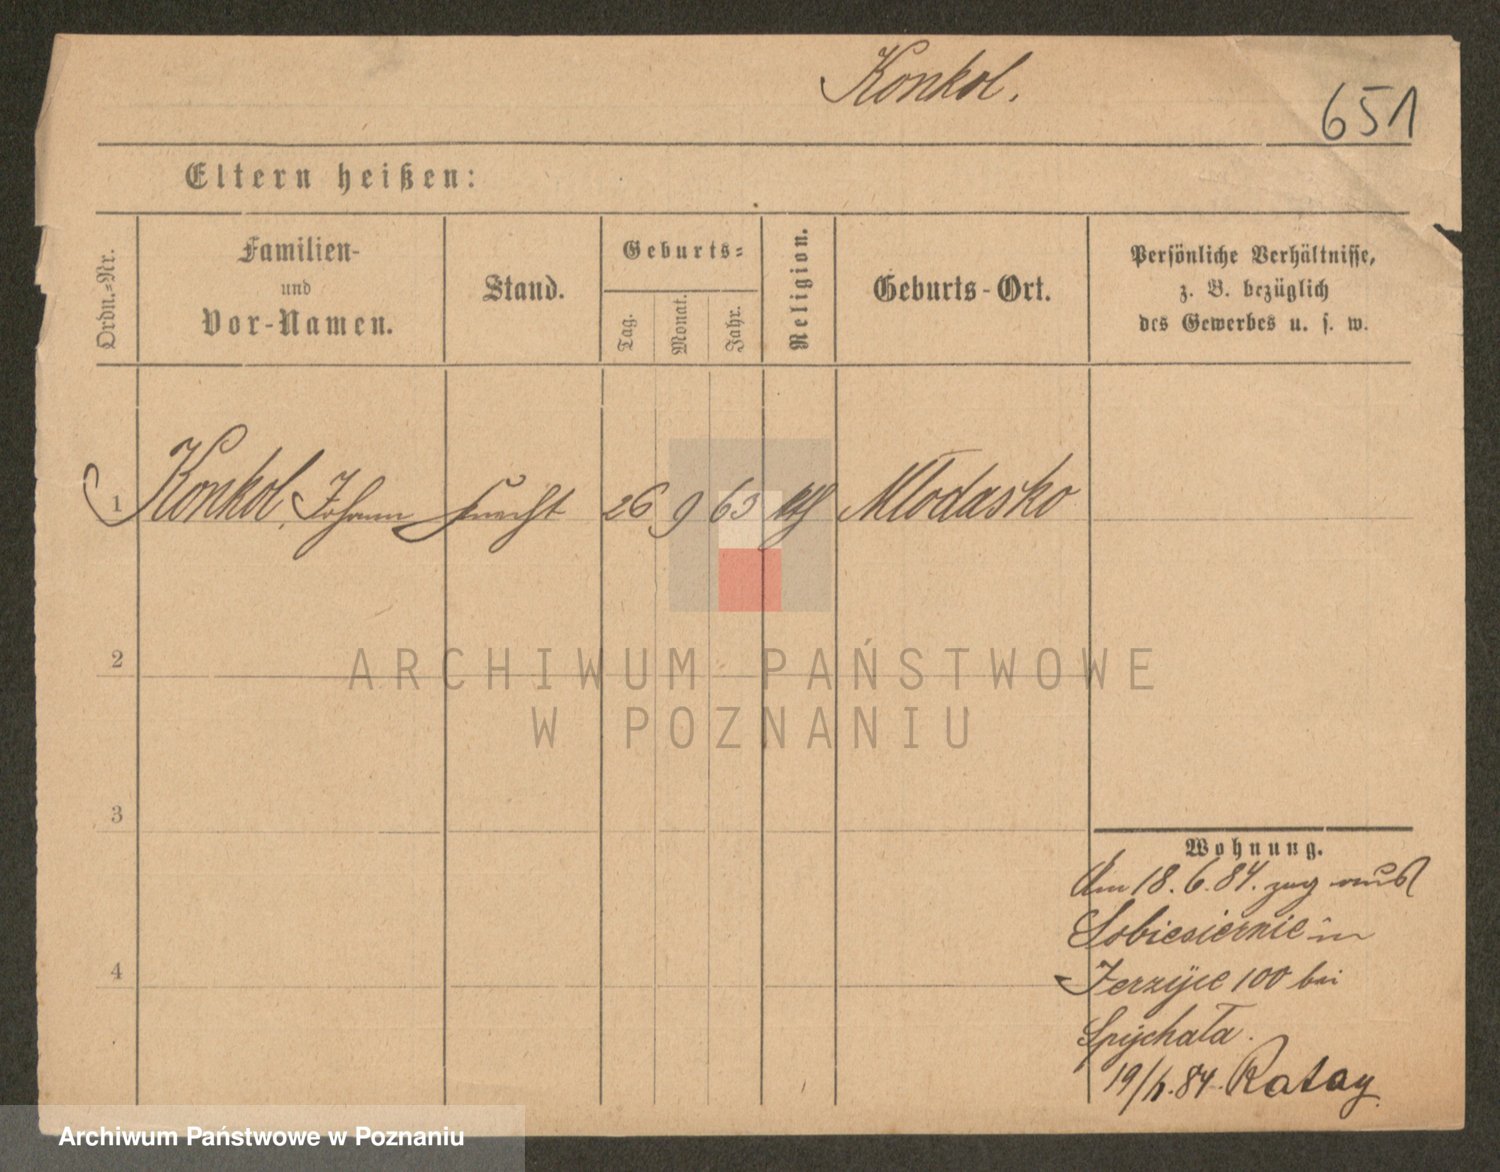 Konkol.
651
Eltern heißen:
Ordn.-Nr.
Familien-
und
Vor-Namen.
Stand.
Geburts-
Tag.
Monat.
Jahr.
Religion.
Geburts-Ort.
Persönliche Verhältnisse,
z. B. bezüglich
des Gewerbes u. s. w.
1 Konkol, Johann Knecht 26 9 63 kth Młodasko
2
ARCHIWUM PAŃSTWOWE
W POZNANIU
3
Wohnung.
Am 18.6.84. zug aus
Sobiesiernie in
4
Jerzyce 100 bei
Spychała.
19/6.84. Ratay
Archiwum Państwowe w Poznaniu